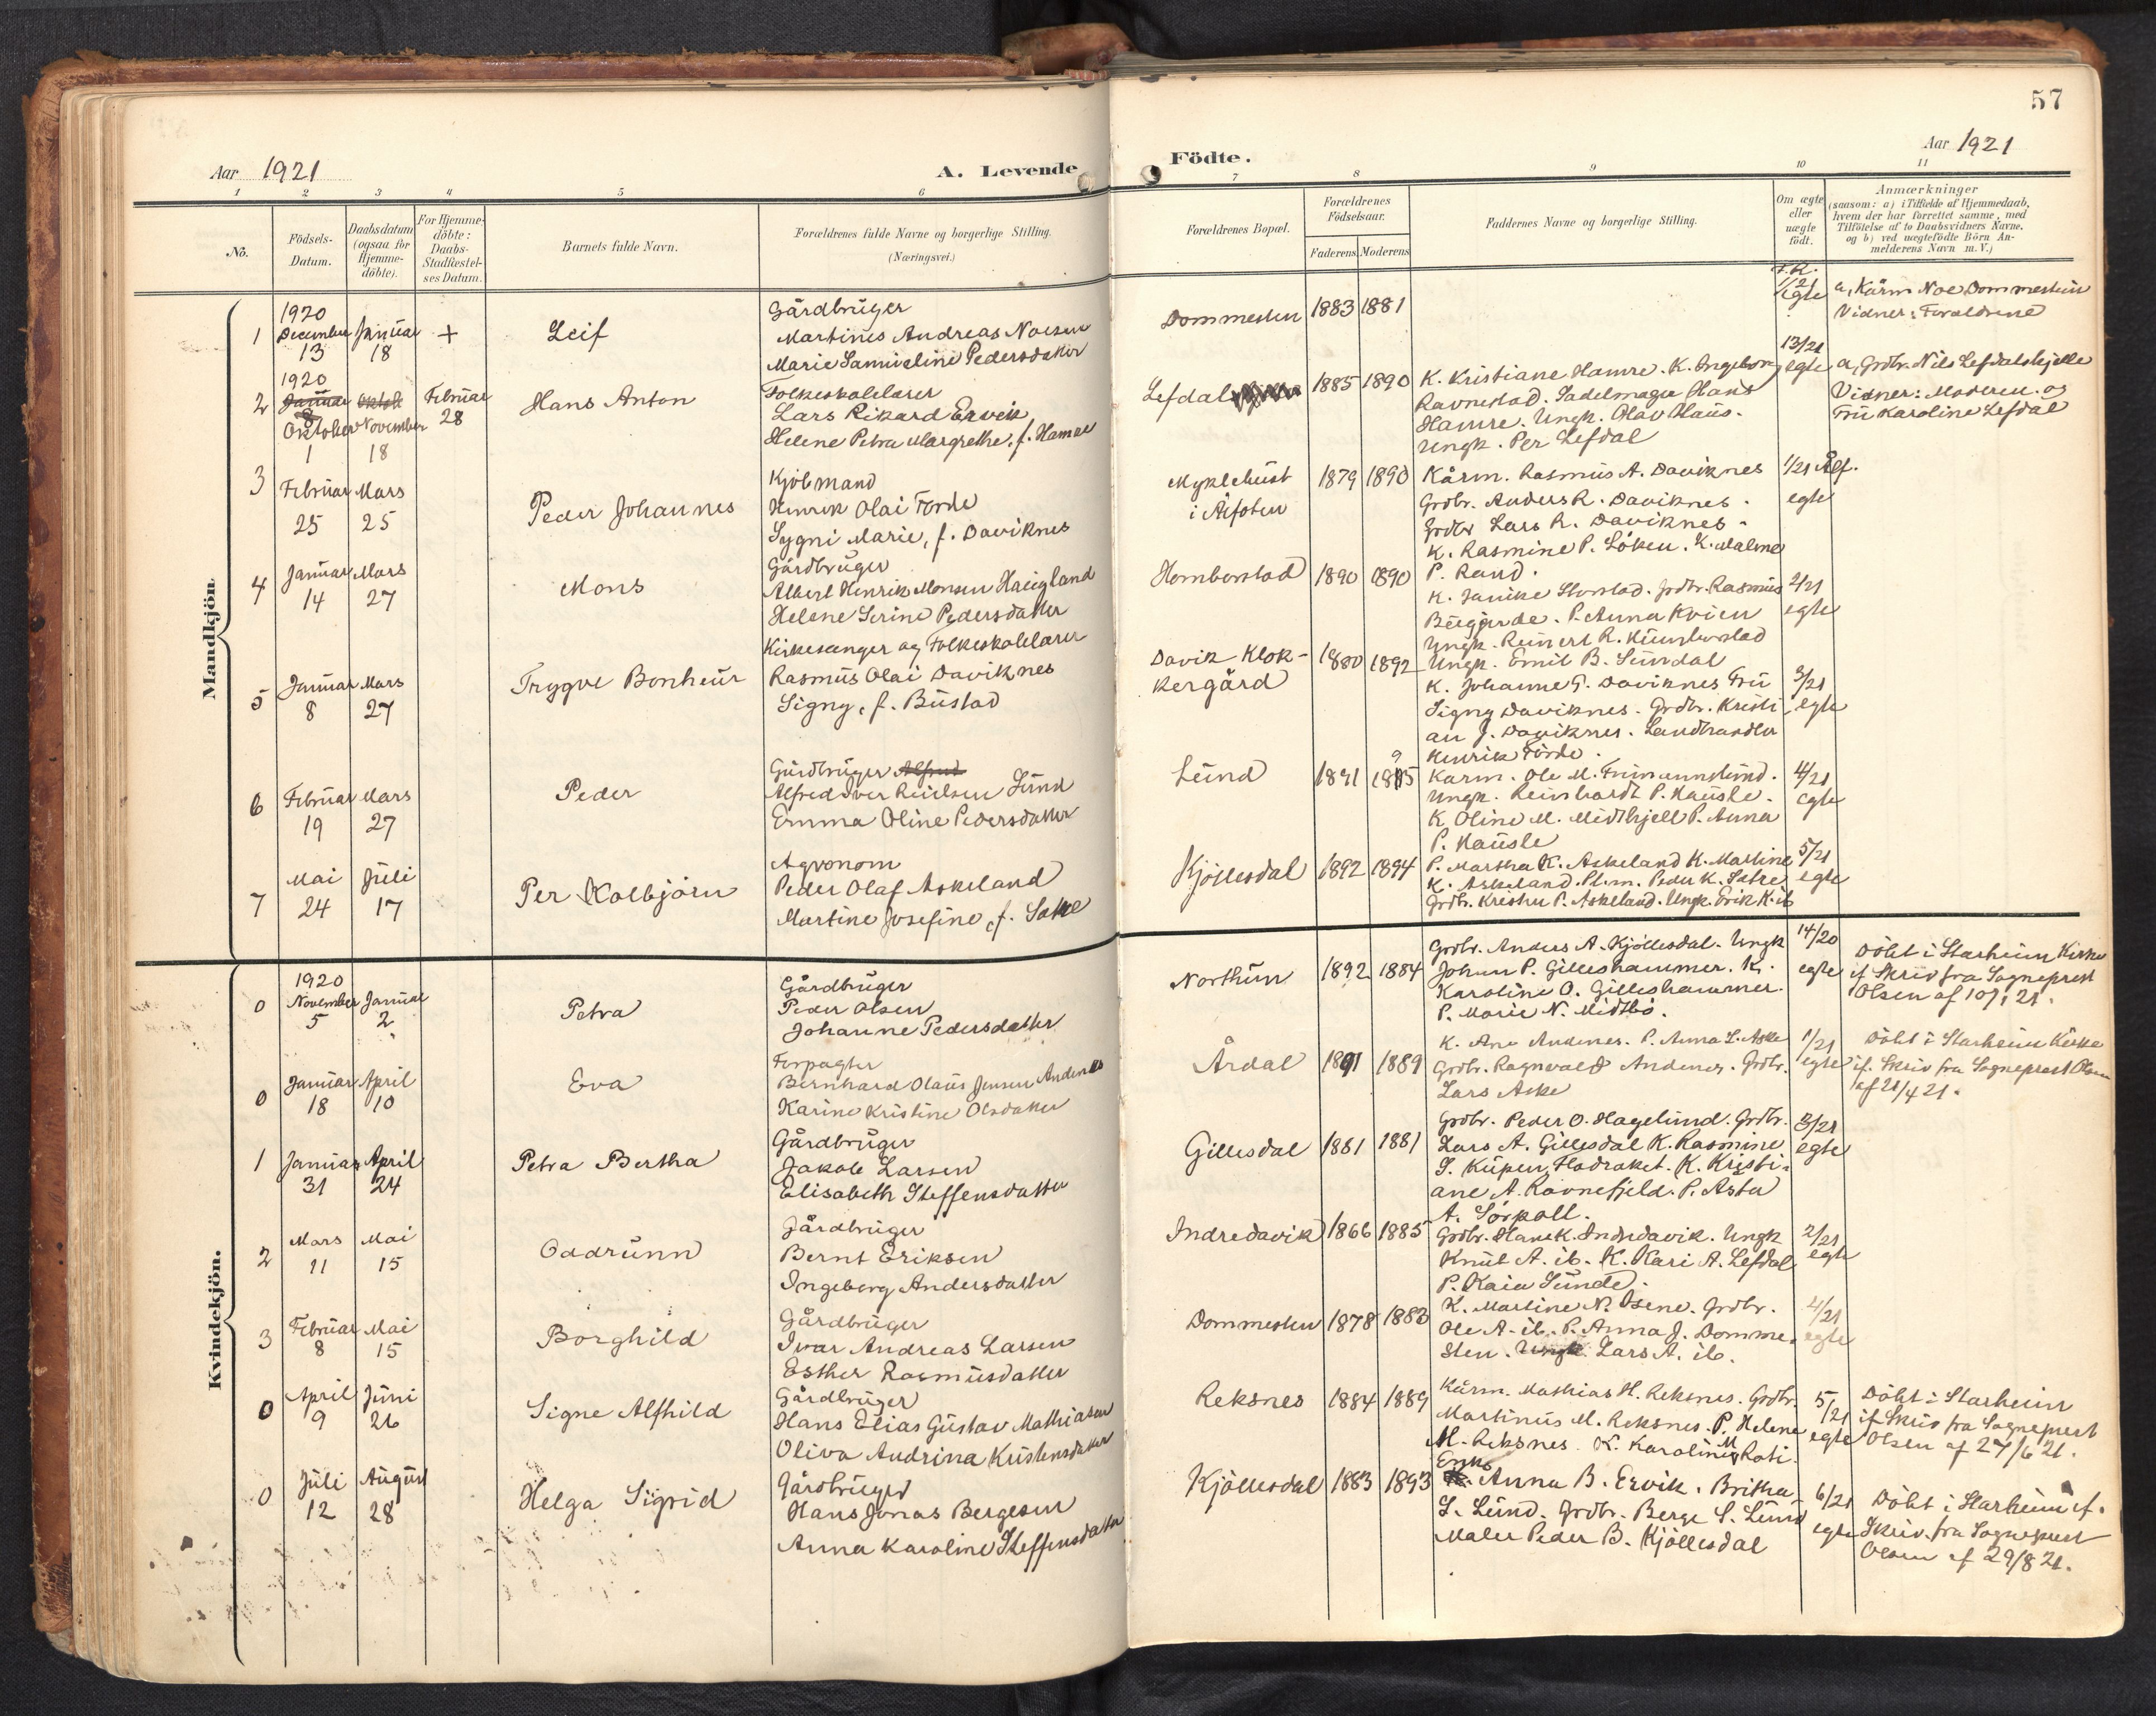 57
Aar 1921
A. Levende
Födte.
Aar 1921
1 2 3 4 5 6
7 8 9 10 11
No.
Födsels-
Datum.
Daabsdatum
(ogsaa for
Hjemme-
döbte).
For Hjemme-
döbte:
Daabs-
Stadfæstel-
ses Datum.
Barnets fulde Navn.
Forældrenes fulde Navne og borgerlige Stilling.
(Næringsvei.)
Forældrenes Bopæl.
Forældrenes
Födselsaar.
Faderens Moderens
Faddernes Navne og borgerlige Stilling.
Om ægte
eller
uægte
födt.
Anmærkninger
(saasom: a) i Tilfælde af Hjemmedaab,
hvem der har forrettet samme, med
Tilföielse af to Daabsvidners Navne,
og b) ved uægtefödte Börn An-
melderens Navn m. V.)
Mandkjön.
1
1920
December
13
Januar
18
+
Leif
Gårdbruger
Martinus Andreas Noesen
Marie Samueline Pedersdatter
Dommesten
1883
1881
1/21
egte
a, Kårm Noe Dommesten
Vidner: Foreldrene
2
1920
Januar
8
Oktober
1
Oktob
November
18
Februar
28
Hans Anton
Folkeskolelærer
Lars Rikard Ervik
Helene Petra Margrethe, f. Hamre
Lefdal
1885
1890
K. Kristiane Hamre. K. Ingeborg
Ravnestad. Sadelmager Hans
Hamre. Ungk. Olav Haus.
Ungk. Per Lefdal
13/21
egte
a, Grdbr. Nils Lefdalskjelle
Vidner: Moderen og
Fru Karoline Lefdal
3
Februar
25
Mars
25
Peder Johannes
Kjöbmand
Henrik Olai Förde
Sygni Marie, f. Daviknes
Myklebust
i Ålfoten
1879
1890
Kårm. Rasmus A. Daviknes
Grdbr. Anders R. Daviknes.
Grdbr Lars R. Daviknes.
K. Rasmine P. Löken. K. Malene
P. Rand.
1/21 Ålf.
egte
4
Januar
14
Mars
27
Mons
Gårdbruger
Albert Henrik Monsen Haugland
Helene Serine Pedersdatter
Homborstad
1890
1890
K. Janike Storstad. Grdbr. Rasmus
P. Anna Kvien
Ungk. Reinert R. Humborstad
Ungk. Emil B. Sundal
2/21
egte
5
Januar
8
Mars
27
Trygve Bonheur
Kirkesanger og Folkeskolelærer
Rasmus Olai Daviknes
Signy, f. Bustad
Davik Klok-
kergård
1880
1892
K. Johanne G. Daviknes Fru
Signy Daviknes. Grdbr. Kristi
an J. Daviknes. Landhandler
Henrik Förde.
3/21
egte
6
Februar
19
Mars
27
Peder
Gårdbruger Alfred
Alfred Iver Reielsen Lund
Emma Oline Pedersdatter
Lund
1891
1895
Kårm. Ole M. Frimannslund.
Ungk. Reinhardt P. Hausle.
K Oline M. Midthjell P. Anna
P. Hausle
4/21
egte
7
Mai
24
Juli
17
Per Kolbjörn
Agronom
Peder Olaf Askeland
Martine Josefine, f. Sætre
Kjöllesdal
1892
1894
P. Martha K. Askeland K. Martine
K. Askeland. Pl.m. Peder K. Sætre
Grdbr. Kristen P. Askeland. Ungk. Erik K. ib
5/21
egte
Kvindekjön.
0
1920
November
5
Januar
2
Petra
Gårdbruger
Peder Olsen
Johanne Pedersdatter
Northun
1892
1884
Grdbr. Anders A. Kjöllesdal. Ungk
Johan P. Gilleshammer. K.
Karoline O. Gilleshammer.
P. Marie N. Midtbö.
14/20
egte
Döbt i Starheim Kirke
if Skriv fra Sogneprest
Olsen af 10/1 21.
0
Januar
18
April
10
Eva
Forpagter
Bernhard Olaus Jensen Andenes
Karine Kristine Olsdatter
Årdal
1891
1889
K. Ane Andenes. P. Anna L. Aske
Grdbr. Ragnvald Andenes. Grdbr.
Lars Aske
1/21
egte
Döbt i Starheim Kirke
if. Skriv fra Sogneprest Olsen
af 21/4 21.
1
Januar
31
April
24
Petra Bertha
Gårdbruger
Jakob Larsen
Elisabeth Steffensdatter
Gillesdal
1881
1881
Grdbr. Peder O. Hagelund. Grdbr.
Lars A. Gillesdal K. Rasmine
K. Kristi-
ane A. Ravnefjeld. P. Asta
A. Sörpoll.
3/21
egte
2
Mars
11
Mai
15
Oddrunn
Gårdbruger
Bernt Eriksen
Ingeborg Andersdatter
Indredavik
1866
1885
Grdbr. Hans K. Indredavik. Ungk
Knut A. ib. K. Kari A. Lefdal
P. Kaia Sunde.
2/21
egte
3
Februar
8
Mai
15
Borghild
Gårdbruger
Ivar Andreas Larsen
Esther Rasmusdatter
Dommesten
1878
1883
K. Martine N. Osene. Grdbr.
Ole A. ib. P. Anna J. Domme-
sten. Ungk. Lars A. ib.
4/21
egte
0
April
9
Juni
26
Signe Alfhild
Gårdbruger
Hans Elias Gustav Mathiasen
Oliva Andrina Kristensdatter
Reksnes
1884
1889
Kårm. Mathias H. Reksnes. Grdbr.
Martinus M. Reksnes. P. Helene
M. Reksnes. K. Karoline M Roti.
5/21
egte
Döbt i Starheim
if Skriv fra Sogneprest
Olsen af 27/6 21.
0
Juli
12
August
28
Helga Sigrid
Gårdbruger
Hans Jonas Bergesen
Anna Karoline Steffensdatter
Kjöllesdal
1883
1893
Enke
Anna B. Ervik. Britha
S. Lund. Grdbr. Berge S. Lund
Maler Peder B. Kjöllesdal
6/21
egte
Döbt i Starheim if.
Skriv. fra Sogneprest
Olsen af 29/8 21.